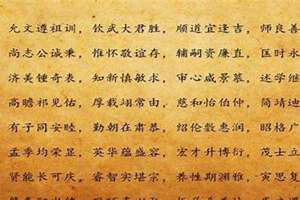 允文遵祖训，钦武大君胜，顺道宜逢吉，师良善
尚志公诚秉，惟怀敬谊存，辅嗣资廉直，匡时永
济美钟奇表，知新慎敏求，审心咸景慕，述学继
高瞻祁见祐，厚载翊常由，慈和怡伯仲，简靖迪
有子同安睦，勤朝在肃恭，绍伦敷惠润，昭格广
孟季均荣显，英华蕴盛容，宏才升博衍，茂士立
贤能长可庆，睿智实堪宗，养性期渊雅，寅思复